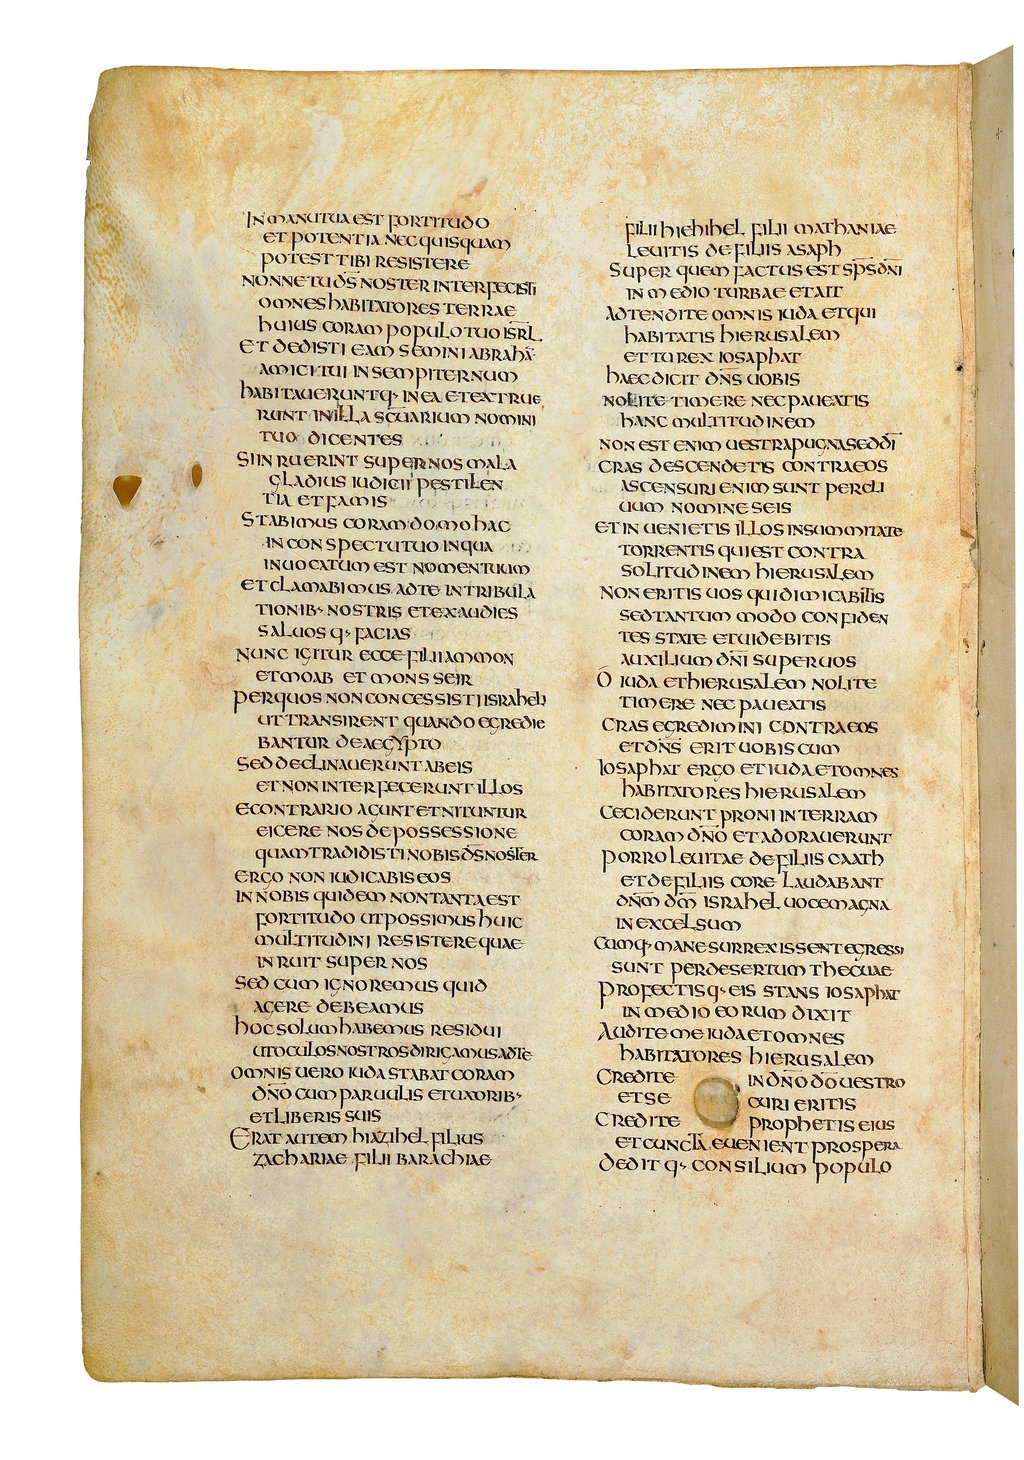 IN MANU TUA EST FORTITUDO
ET POTENTIA NEC QUISQUAM
POTEST TIBI RESISTERE
NONNE TU DS̄ NOSTER INTERFECISTI
OMNES HABITATORES TERRAE
HUIUS CORAM POPULO TUO ISRL̄
ET DEDISTI EAM SEMINI ABRAHĀ
AMICI TUI IN SEMPITERNUM
HABITAUERUNTQ· IN EA ET EXTRUE
RUNT IN ILLA SC̄UARIUM NOMINI
TUO DICENTES
SI INRUERINT SUPER NOS MALA
GLADIUS IUDICII PESTILEN
TIA ET FAMIS
STABIMUS CORAM DOMO HAC
IN CONSPECTU TUO IN QUA
INUOCATUM EST NOMEN TUUM
ET CLAMABIMUS AD TE IN TRIBULA
TIONIB· NOSTRIS ET EXAUDIES
SALUOS Q· FACIAS
NUNC IGITUR ECCE FILII AMMON
ET MOAB ET MONS SEIR
PER QUOS NON CONCESSISTI ISRAHELI
UT TRANSIRENT QUANDO EGREDIE
BANTUR DE AEGYPTO
SED DECLINAUERUNT AB EIS
ET NON INTERFECERUNT ILLOS
E CONTRARIO AGUNT ET NITUNTUR
EICERE NOS DE POSSESSIONE
QUAM TRADIDISTI NOBIS DS̄ NOSTER
ERGO NON IUDICABIS EOS
IN NOBIS QUIDEM NON TANTA EST
FORTITUDO UT POSSIMUS HUIC
MULTITUDINI RESISTERE QUAE
INRUIT SUPER NOS
SED CUM IGNOREMUS QUID
AGERE DEBEAMUS
HOC SOLUM HABEMUS RESIDUI
UT OCULOS NOSTROS DIRIGAMUS AD TE
OMNIS UERO IUDA STABAT CORAM
DN̄O CUM PARUULIS ET UXORIB·
ET LIBERIS SUIS
ERAT AUTEM HIAZIHEL FILIUS
ZACHARIAE FILII BARACHIAE
FILII HIEHIHEL FILII MATHANIAE
LEUITIS DE FILIIS ASAPH
SUPER QUEM FACTUS EST SP̄S DN̄I
IN MEDIO TURBAE ET AIT
ADTENDITE OMNIS IUDA ET QUI
HABITATIS HIERUSALEM
ET TU REX IOSAPHAT
HAEC DICIT DN̄S UOBIS
NOLITE TIMERE NEC PAUEATIS
HANC MULTITUDINEM
NON EST ENIM UESTRA PUGNA SED DĪ
CRAS DESCENDETIS CONTRA EOS
ASCENSURI ENIM SUNT PER CLI
UUM NOMINE SEIS
ET INUENIETIS ILLOS IN SUMMITATE
TORRENTIS QUI EST CONTRA
SOLITUDINEM HIERUSALEM
NON ERITIS UOS QUI DIMICABITIS
SED TANTUM MODO CONFIDEN
TES STATE ET UIDEBITIS
AUXILIUM DN̄I SUPER UOS
O IUDA ET HIERUSALEM NOLITE
TIMERE NEC PAUEATIS
CRAS EGREDIMINI CONTRA EOS
ET DN̄S ERIT UOBISCUM
IOSAPHAT ERGO ET IUDA ET OMNES
HABITATORES HIERUSALEM
CECIDERUNT PRONI IN TERRAM
CORAM DN̄O ET ADORAUERUNT
PORRO LEUITAE DE FILIIS CAATH
ET DE FILIIS CORE LAUDABANT
DN̄M DM̄ ISRAHEL UOCE MAGNA
IN EXCELSUM
CUMQ· MANE SURREXISSENT EGRESSI
SUNT PER DESERTUM THECUAE
PROFECTISQ· EIS STANS IOSAPHAT
IN MEDIO EORUM DIXIT
AUDITE ME IUDA ET OMNES
HABITATORES HIERUSALEM
CREDITE IN DN̄O DO̅ UESTRO
ET SE CURI ERITIS
CREDITE PROPHETIS EIUS
ET CUNCTA EUENIENT PROSPERA
DEDIT Q· CONSILIUM POPULO